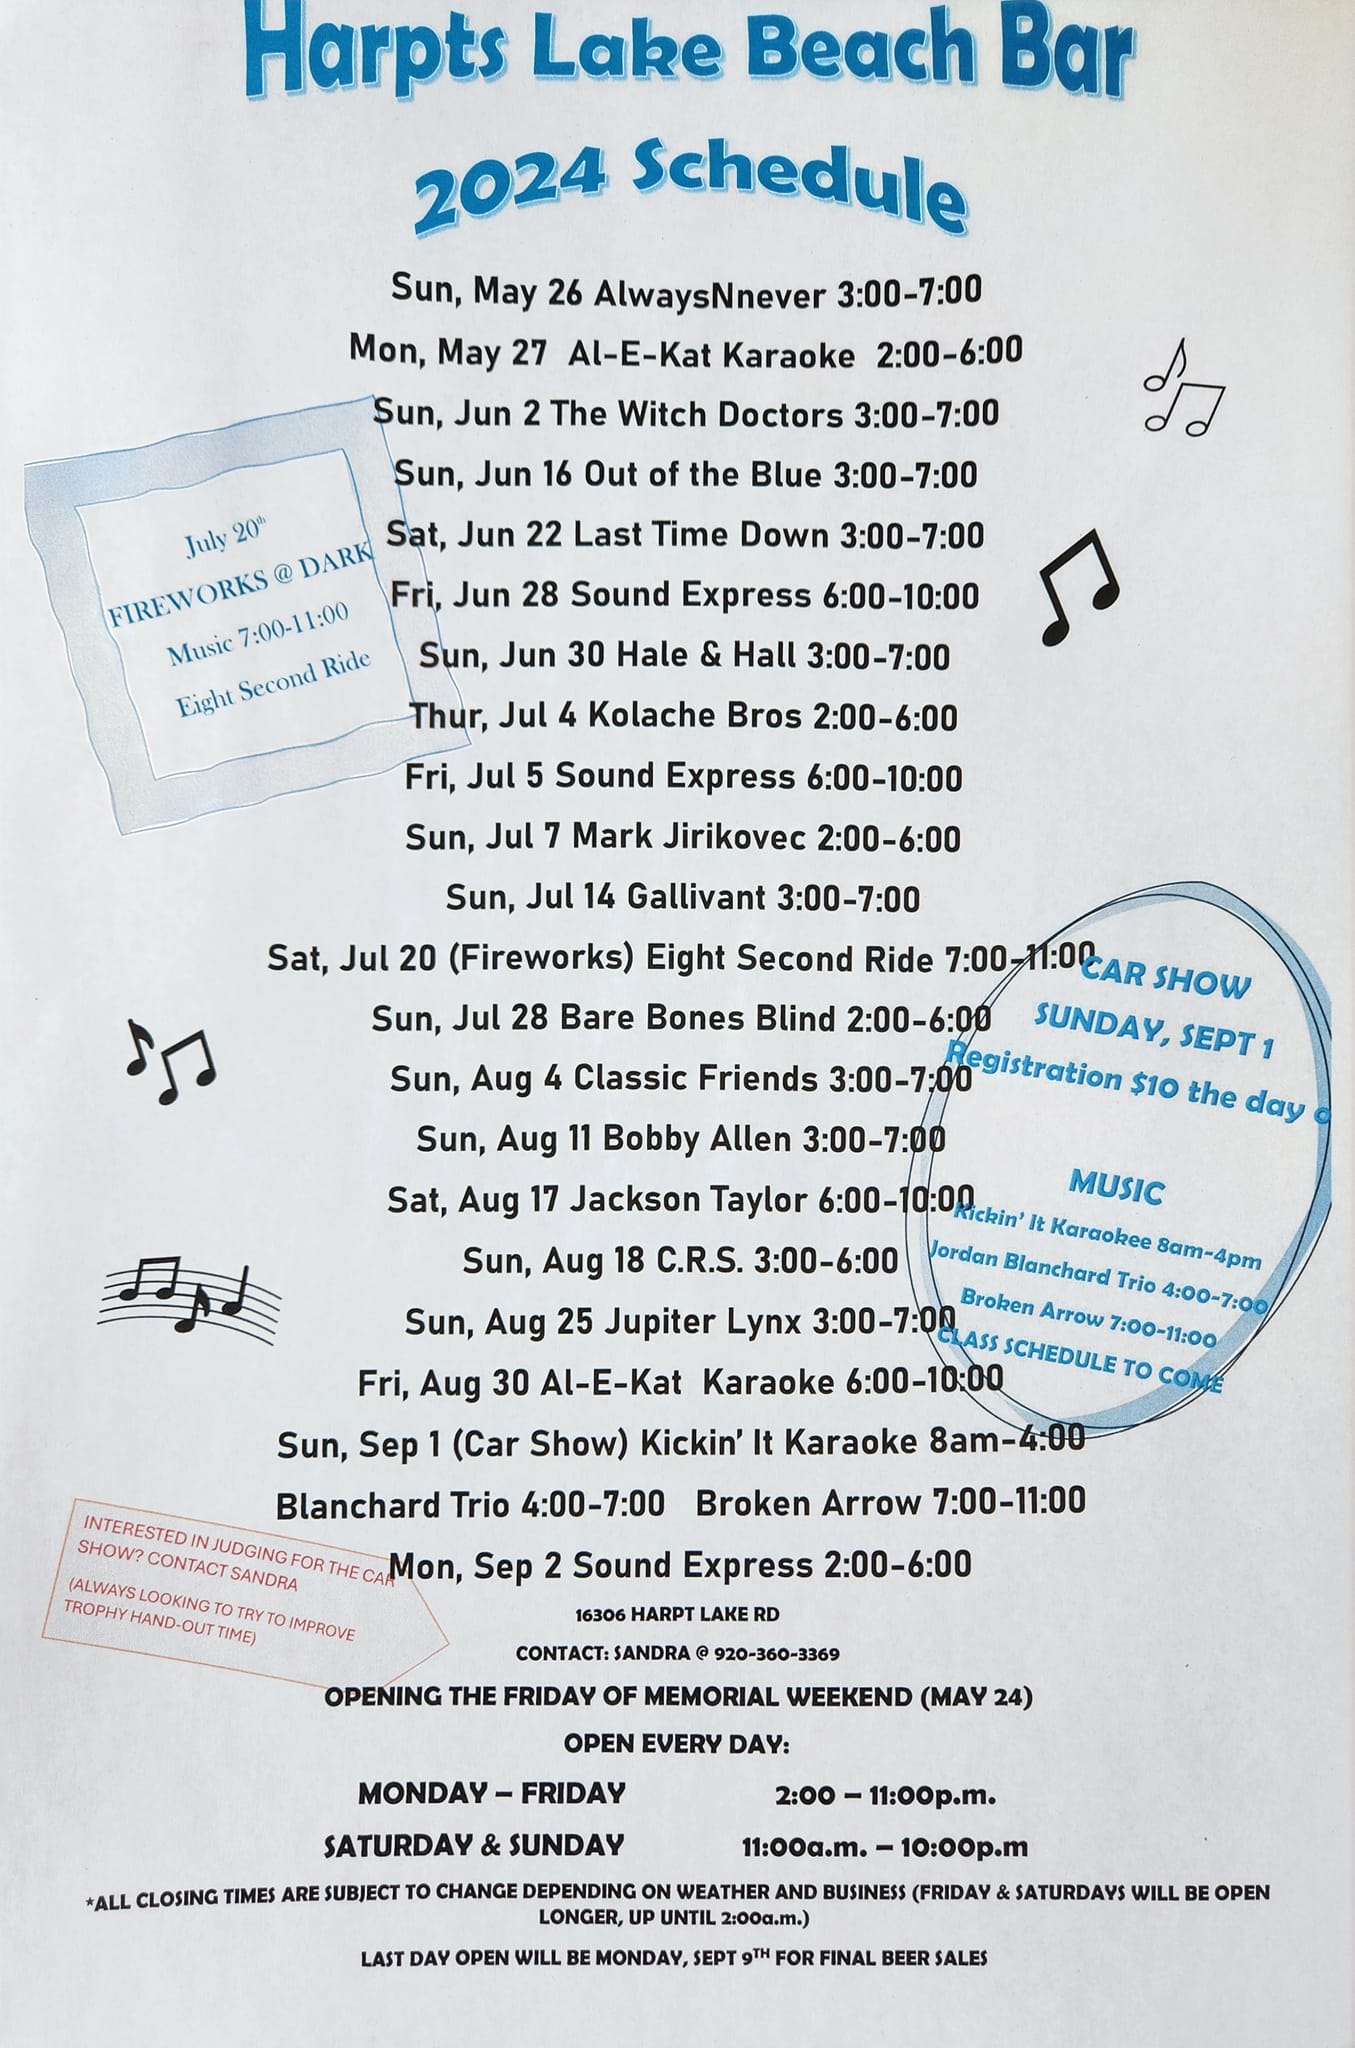 Harpts Lake Beach Bar
2024 Schedule
Sun, May 26 AlwaysNnever 3:00-7:00
Mon, May 27 Al-E-Kat Karaoke 2:00-6:00
Sun, Jun 2 The Witch Doctors 3:00-7:00
Sun, Jun 16 Out of the Blue 3:00-7:00
Sat, Jun 22 Last Time Down 3:00-7:00
Fri, Jun 28 Sound Express 6:00-10:00
Sun, Jun 30 Hale & Hall 3:00-7:00
Thur, Jul 4 Kolache Bros 2:00-6:00
Fri, Jul 5 Sound Express 6:00-10:00
Sun, Jul 7 Mark Jirikovec 2:00-6:00
Sun, Jul 14 Gallivant 3:00-7:00
Sat, Jul 20 (Fireworks) Eight Second Ride 7:00-11:00
Sun, Jul 28 Bare Bones Blind 2:00-6:00
Sun, Aug 4 Classic Friends 3:00-7:00
Sun, Aug 11 Bobby Allen 3:00-7:00
Sat, Aug 17 Jackson Taylor 6:00-10:00
Sun, Aug 18 C.R.S. 3:00-6:00
Sun, Aug 25 Jupiter Lynx 3:00-7:00
Fri, Aug 30 Al-E-Kat Karaoke 6:00-10:00
Sun, Sep 1 (Car Show) Kickin' It Karaoke 8am-4:00
Blanchard Trio 4:00-7:00 Broken Arrow 7:00-11:00
Mon, Sep 2 Sound Express 2:00-6:00
July 20th
FIREWORKS @ DARK
Music 7:00-11:00
Eight Second Ride
CAR SHOW
SUNDAY, SEPT 1
Registration $10 the day
MUSIC
Kickin' It Karaokee 8am-4pm
Jordan Blanchard Trio 4:00-7:00
Broken Arrow 7:00-11:00
CLASS SCHEDULE TO COME
INTERESTED IN JUDGING FOR THE CAR
SHOW? CONTACT SANDRA
(ALWAYS LOOKING TO TRY TO IMPROVE
TROPHY HAND-OUT TIME)
16306 HARPT LAKE RD
CONTACT: SANDRA @ 920-360-3369
OPENING THE FRIDAY OF MEMORIAL WEEKEND (MAY 24)
OPEN EVERY DAY:
MONDAY – FRIDAY 2:00 – 11:00p.m.
SATURDAY & SUNDAY 11:00a.m. – 10:00p.m
*ALL CLOSING TIMES ARE SUBJECT TO CHANGE DEPENDING ON WEATHER AND BUSINESS (FRIDAY & SATURDAYS WILL BE OPEN
LONGER, UP UNTIL 2:00a.m.)
LAST DAY OPEN WILL BE MONDAY, SEPT 9TH FOR FINAL BEER SALES